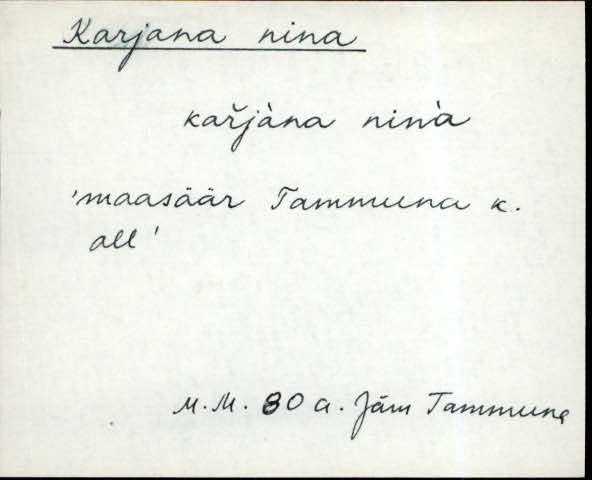 Karjana nina
kařjàna nin̄a
'maasäär Tammuna k.
all'
M.M. 80 a. Jäm Tammuna